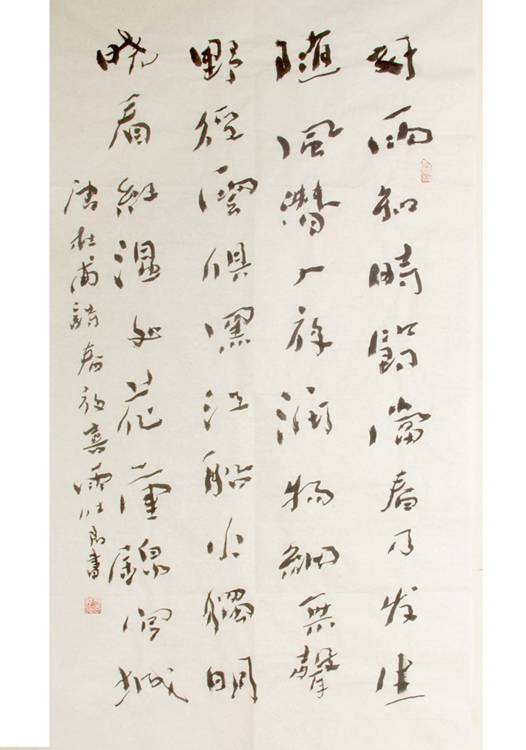 好雨知時節當春乃发生
隨風潛入夜潤物細無聲
野徑雲俱黑江船火獨明
晓看紅湿处花重錦官城
唐杜甫詩春夜喜雨書